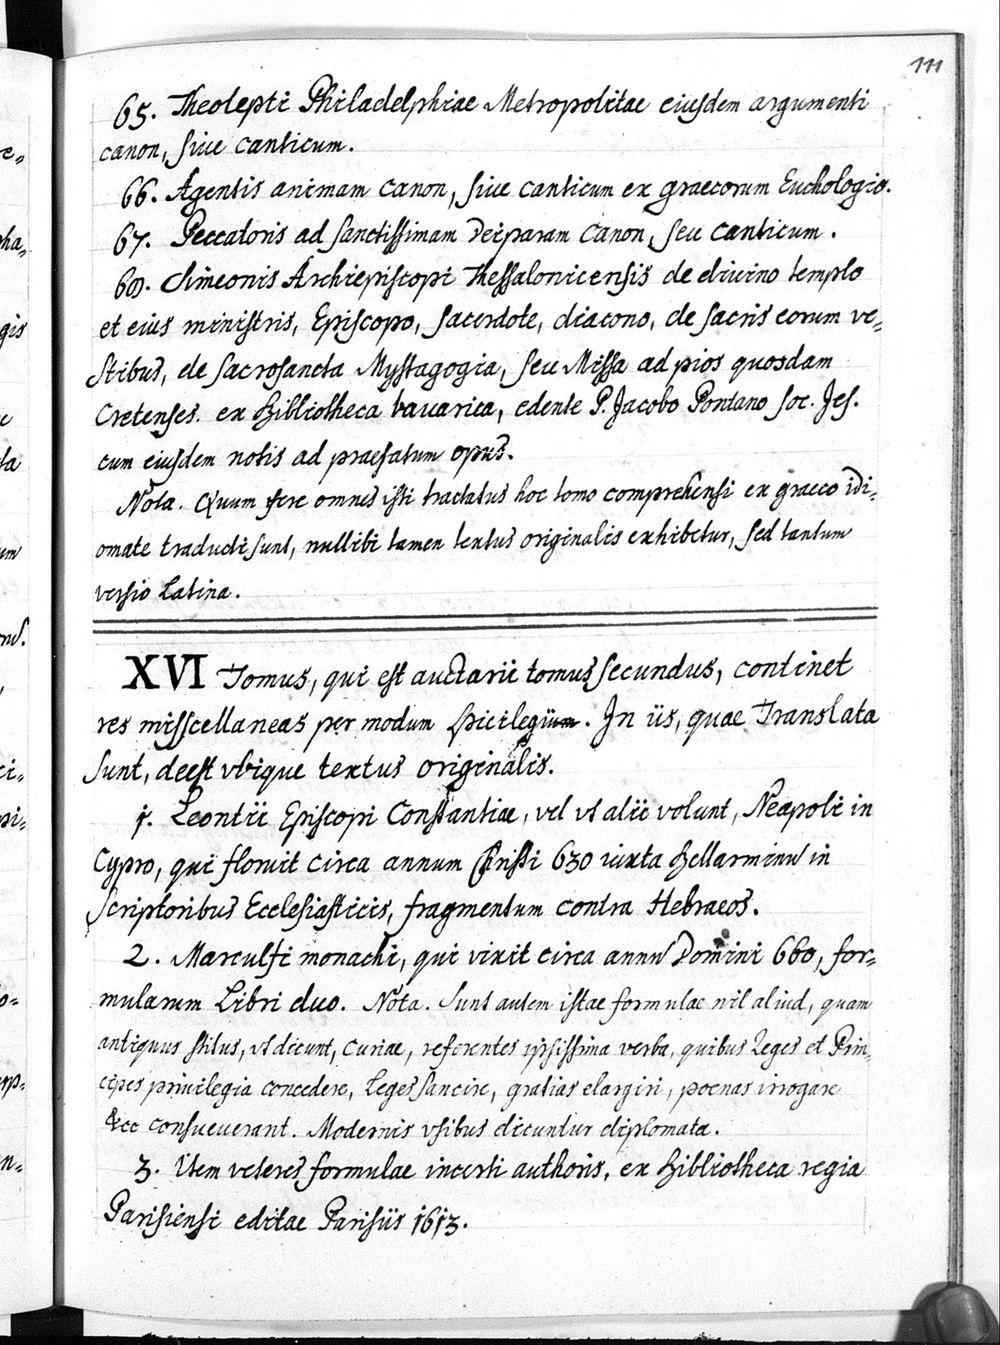 111
65. Theolepti Philadelphiae Metropolitae eiusdem argumenti
canon, siue canticum.
66. Agentis animam canon, siue canticum ex graecorum Euchologio.
67. Peccatoris ad sanctissimam Deiparam canon, seu canticum.
68. Simeonis Archiepiscopi Thessalonicensis de diuino templo
et eius ministris, Episcopo, sacerdote, diacono, de sacris eorum ve=
stibus, de sacrosancta Mystagogia, seu Missa ad pios quosdam
Cretenses. ex Bibliotheca bauarica, edente P. Jacobo Pontano Soc. Jes.
cum eiusdem notis ad praefatum opus.
Nota. Quum fere omnes isti tractatus hoc tomo comprehensi ex graeco idi=
omate traducti sunt, nullibi tamen textus originalis exhibetur, sed tantum
versio Latina.
XVI Tomus, qui est auctarii tomus secundus, continet
res misscellaneas per modum spicilegiium. In iis, quae Translata
sunt, deest vbique textus originalis.
1. Leontii Episcopi Constantiae, vel vt alii volunt, Neapoli in
Cypro, qui floruit circa annum Christi 630 iuxta Bellarminu in
Scriptoribus Ecclesiasticis, fragmentum contra Hebraeos.
2. Marculfi monachi, qui vixit circa annu Domini 660, for=
mularum Libri duo. Nota. Sunt autem istae formulae nil aliud, quam
antiquus stilus, vt dicunt, Curiae, referentes ipsissima verba, quibus Reges et Prin=
cipes priuilegia concedere, Leges sancire, gratias elargiri, poenas irrogare
&cc consueuerant. Modernis vsibus dicuntur diplomata.
3. Item veteres formulae incerti authoris, ex Bibliotheca regia
Parisiensi editae Parisiis 1613.